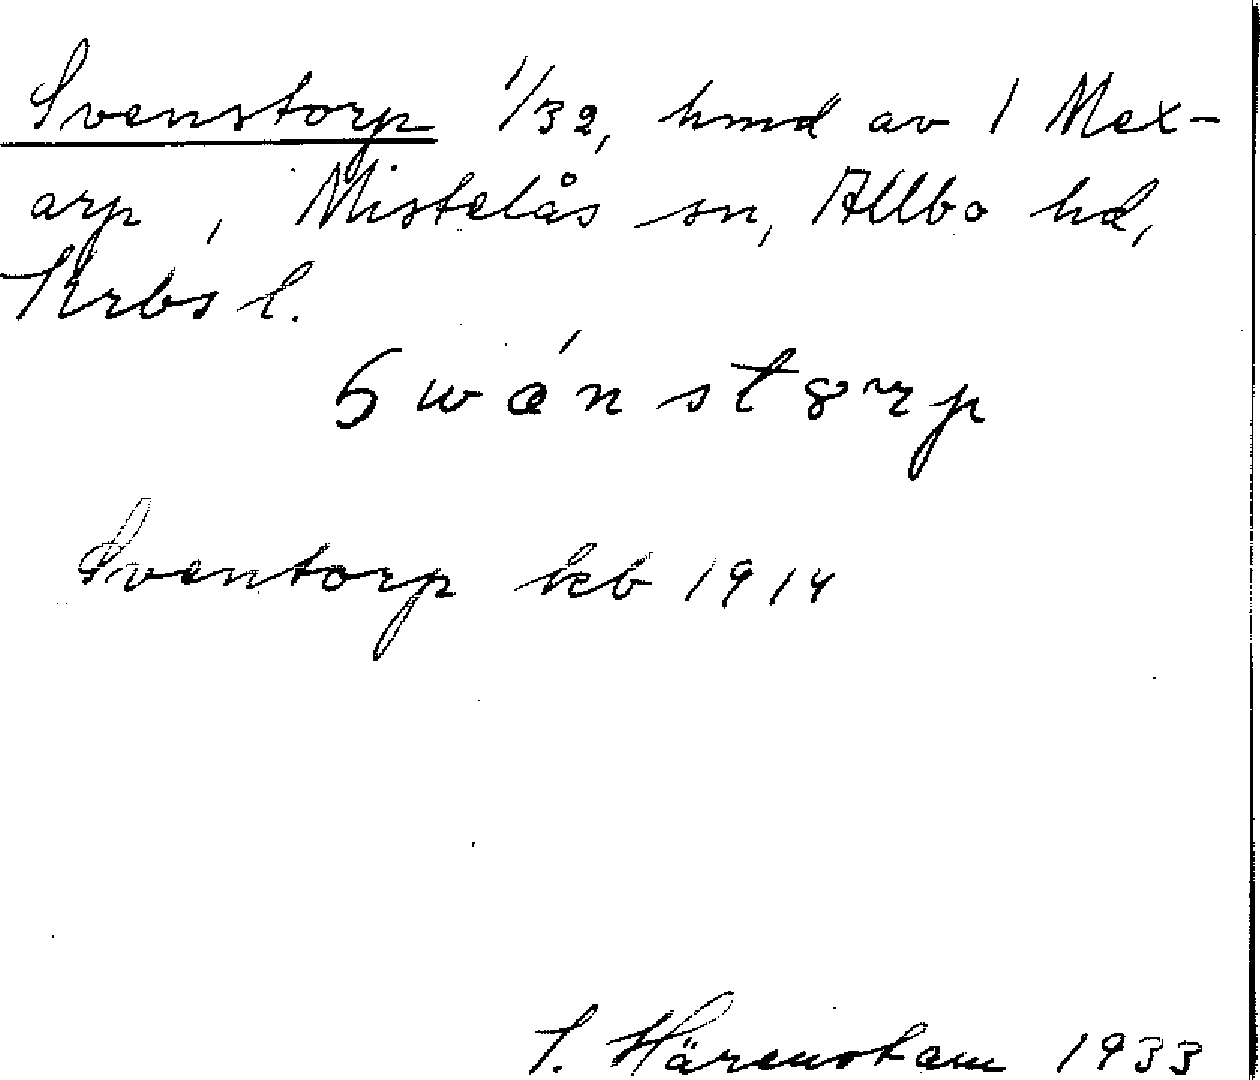 Svenstorp 1/32, hmd av 1 Mex-
arp, Mistelås sn, Allbo hd,
Krbs l.
Swánstorp
Sventorp keb 1914
I. Härenstam 1933